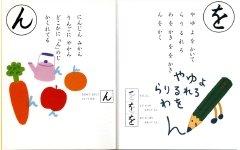 を
やゆよをかいて
らりるれろ
んをかく
やゆよ
らりるれろ
わを
ん
ん
にんじん みかん
やかん
どこかに 「ん」のじ
かくれてる